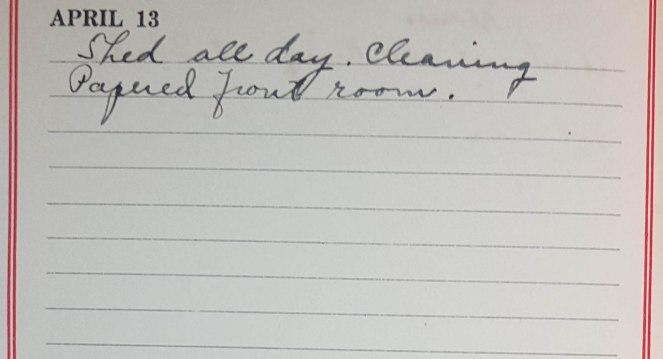 APRIL 13
Shed all day. Cleaning
Papered front room.